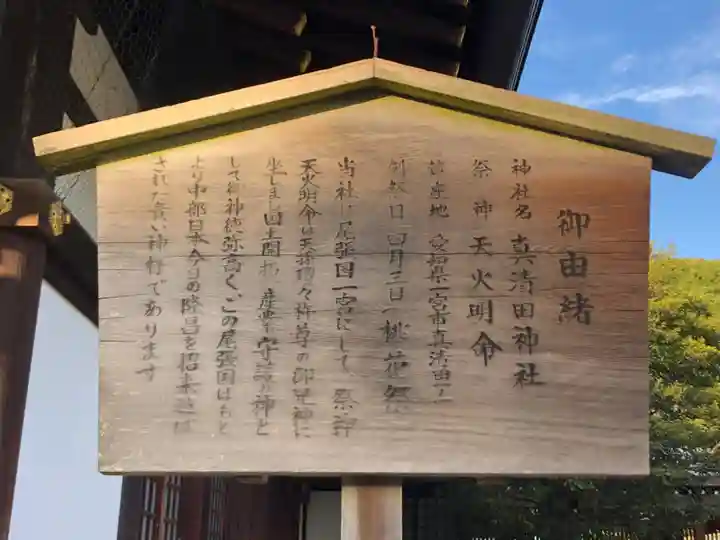 御由緒
神社名 真清田神社
祭神 天火明命
鎮座地 愛知県一宮市真清田一ノ
例祭日 四月三日 桃花祭
当社は尾張国一宮にして、祭神
天火明命は天孫瓊々杵尊の御兄神に
坐しまし国土開拓、産業守護の神と
して御神徳弥高く、この尾張国はもと
より中部日本今日の隆昌を招来
された貴い神様であります